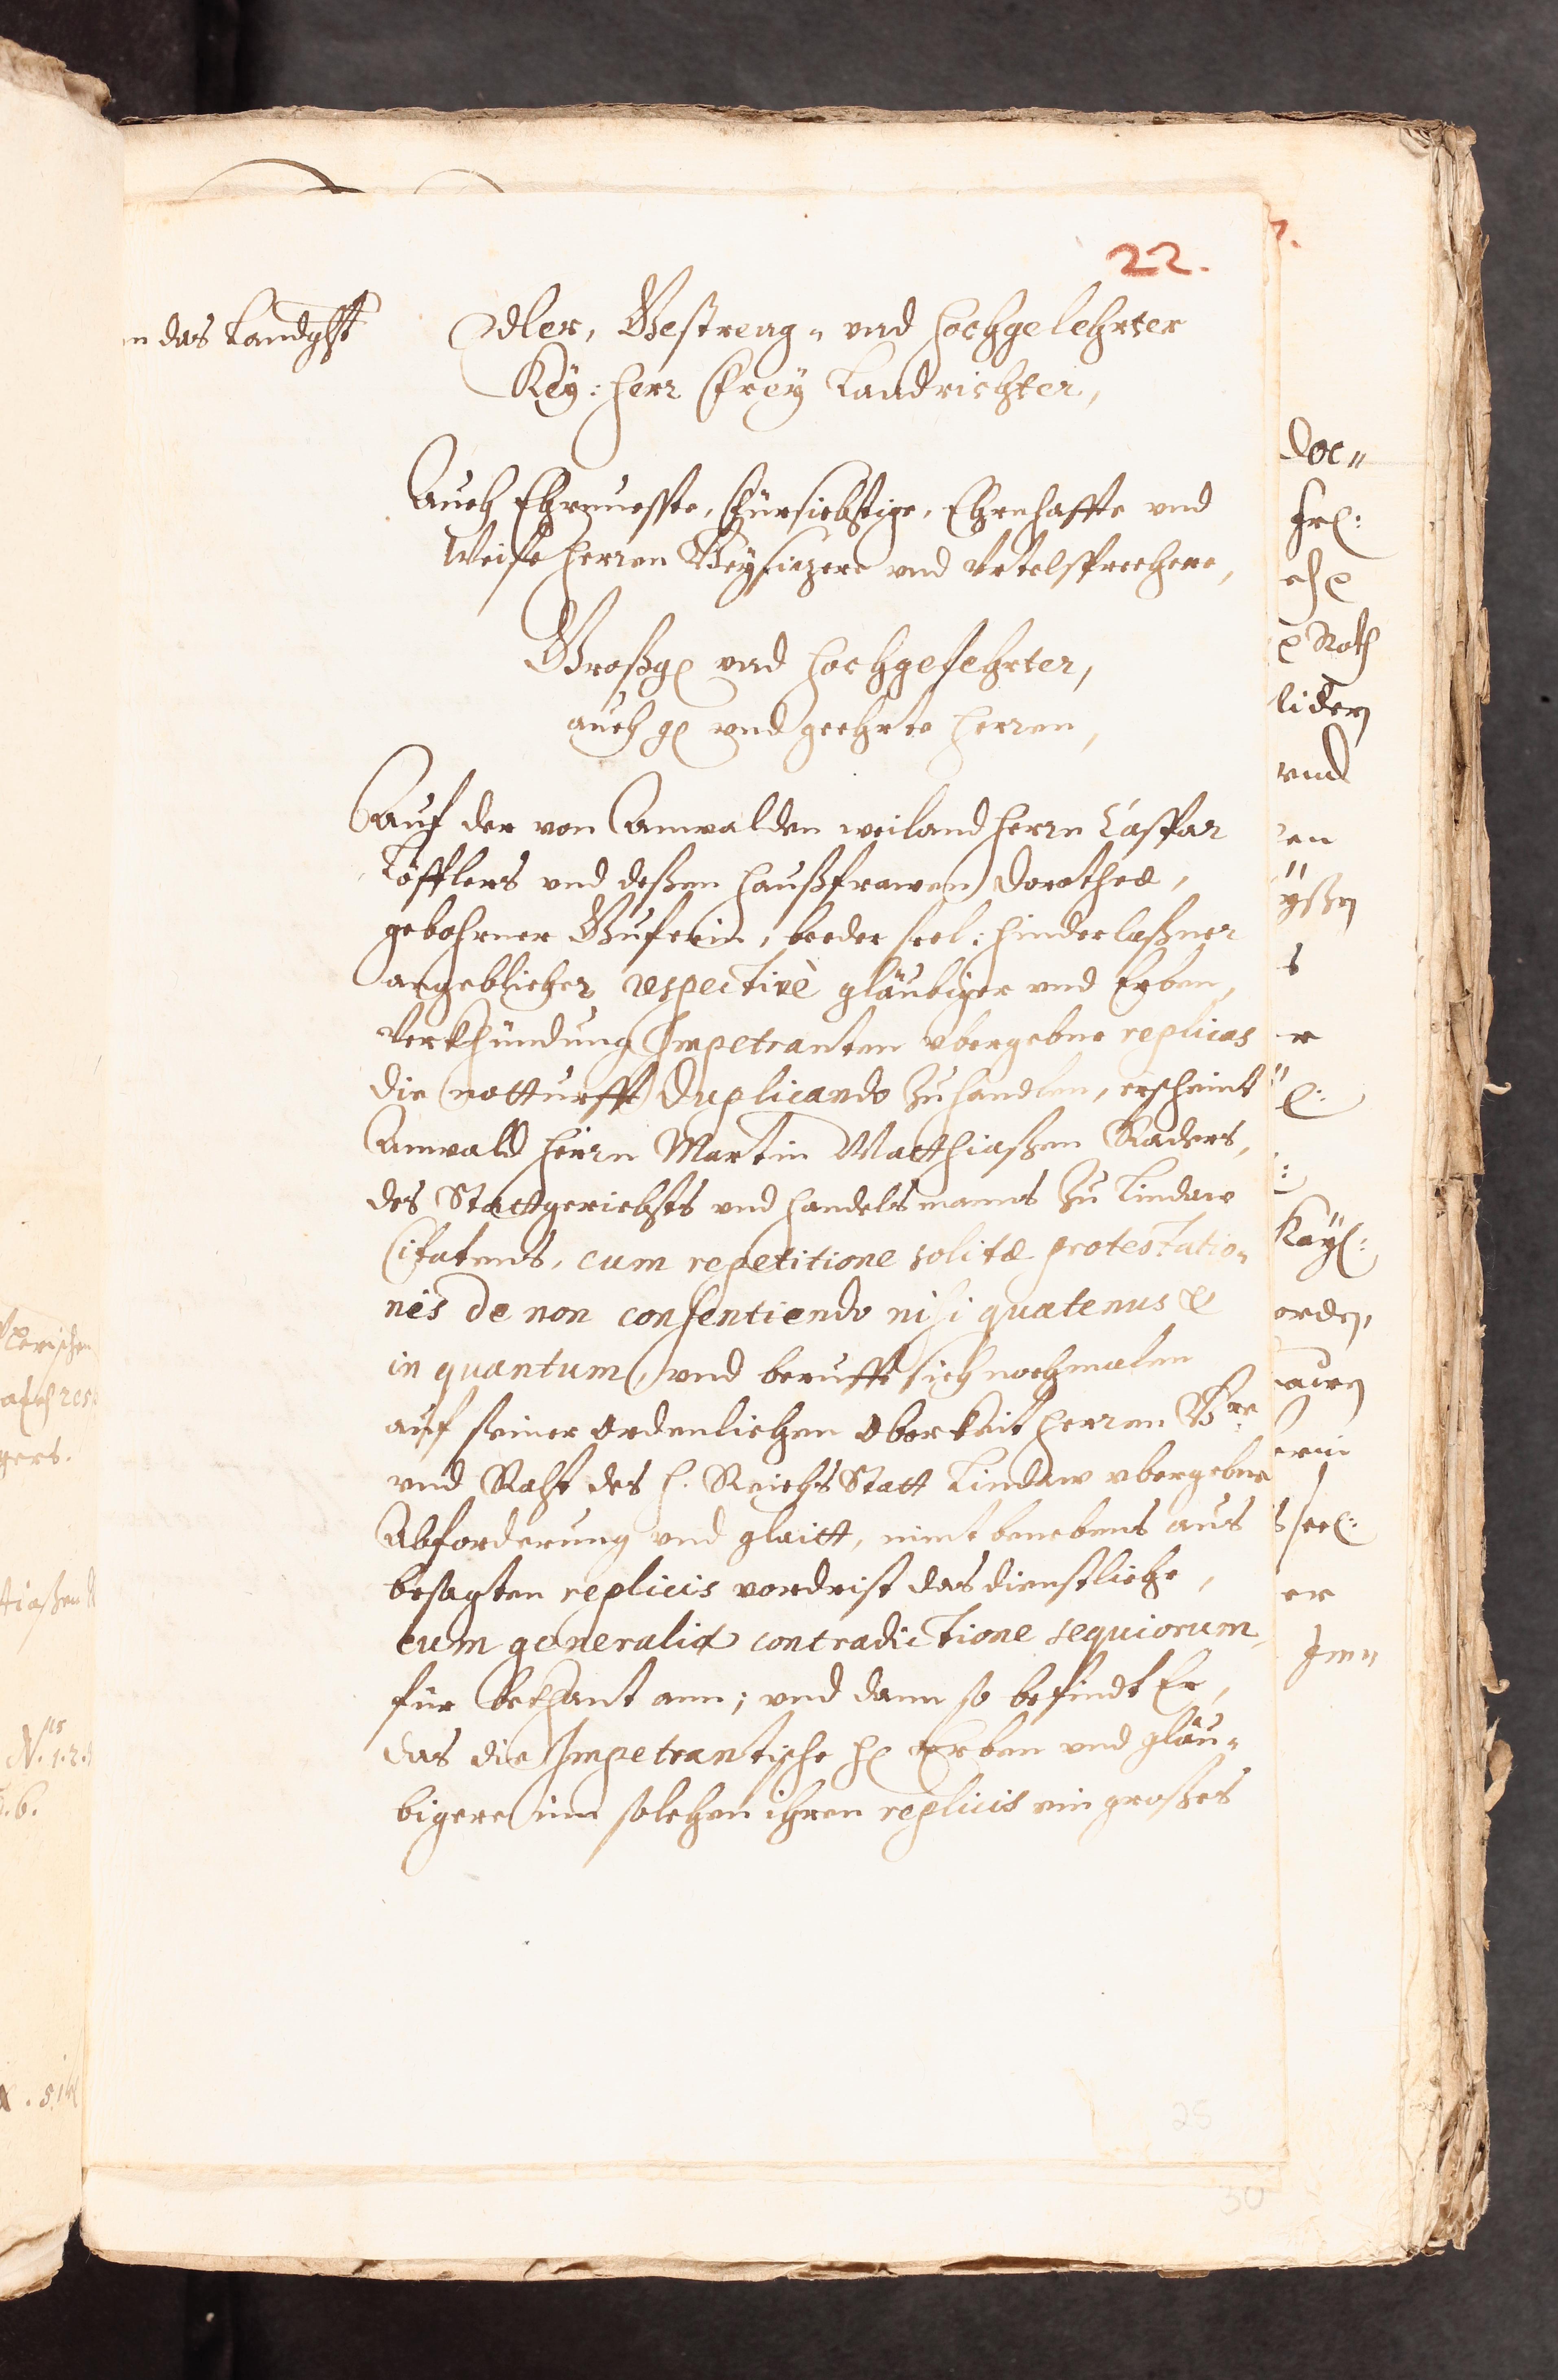 22.
das Landgst
Edler, Gestreng- vnd Hochgelehrter
Key: Herr Frey Landrichter,
Auch Ehrnueste, Fürsichtige, Ehrnhaffte vnd
Weise Herren Beysizere vnd Vrtelsprechere,
Großg vnd Hochgeehrter,
auch g vnd geehrte Herren,
Auf der von Anwalden weiland Herrn Caspar
Löfflers vnd deßen Haußfrawen Dorotheæ,
gebohrner Guferin, beeder seel: hinderlaßner
angeblicher respectivè gläubiger vnd Erben,
Verkhündung Impetranten vbergebne replicas
die notturfft duplicando zuhandlen, erscheint
Anwald Herrn Martin Matthiaßen Raders,
des Stattgerichts vnd Handelsmanns zu Lindaw
Citatens, cum repetitione solitæ protestatio-
nis de non consentiendo nisi quatenus &
in quantum, vnd berufft sich nochmalen
auf seiner ordenlichen Oberkeit Herren Bre
vnd Raht des H. Reichs Statt Lindaw vbergebne
Abforderung vnd glaitt, nimt benebens aus
besagten replicis vordrist das dienstliche,
cum generali contradictione sequiorum,
für bekhant ann; vnd dann so befindt Er,
das die Impetrantische H Erben vnd gläu-
bigere inn solchen ihren replicis ein großes
25
30